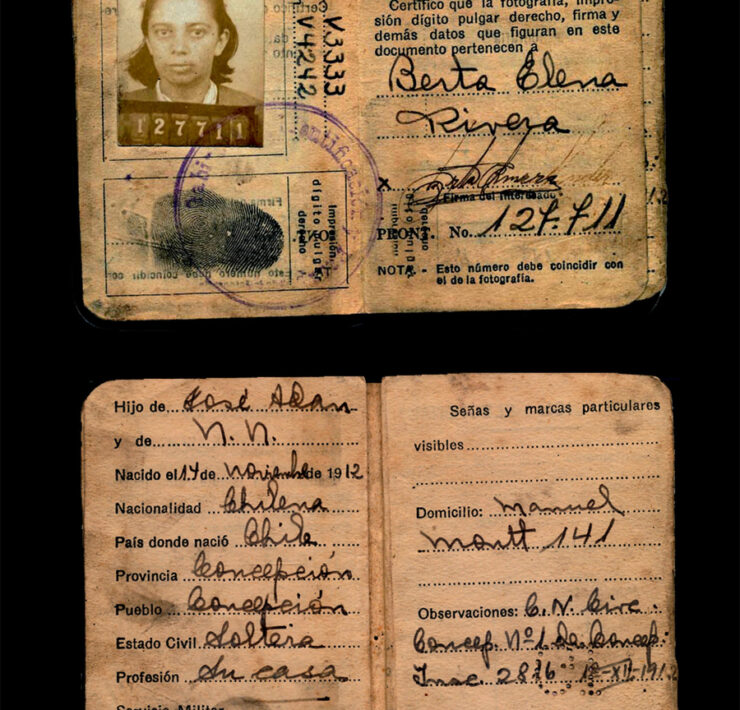 Certifico que la fotografía, impre-
sión dígito pulgar derecho, firma y
demás datos que figuran en este
documento pertenecen á
Berta Elena
Rivera
V.3333
V4242
127711
Firma del Interesado
Impresión
dígito pulgar
derecho
PRONT. No. 127.711
NOTA.- Esto número debe coincidir con
el de la fotografía.
Hijo de José Adan
y de N. N.
Nacido el 14 de noviembre de 1912
Nacionalidad Chilena
País donde nació Chile
Provincia Concepción
Pueblo Concepción
Estado Civil Soltera
Profesión Su casa
Servicio Militar
Señas y marcas particulares
visibles
Domicilio: Manuel
Montt 141
Observaciones: C. N. Circ.
Concep. Nº1 de Concep.
Insc. 2876 1º-XII-1912